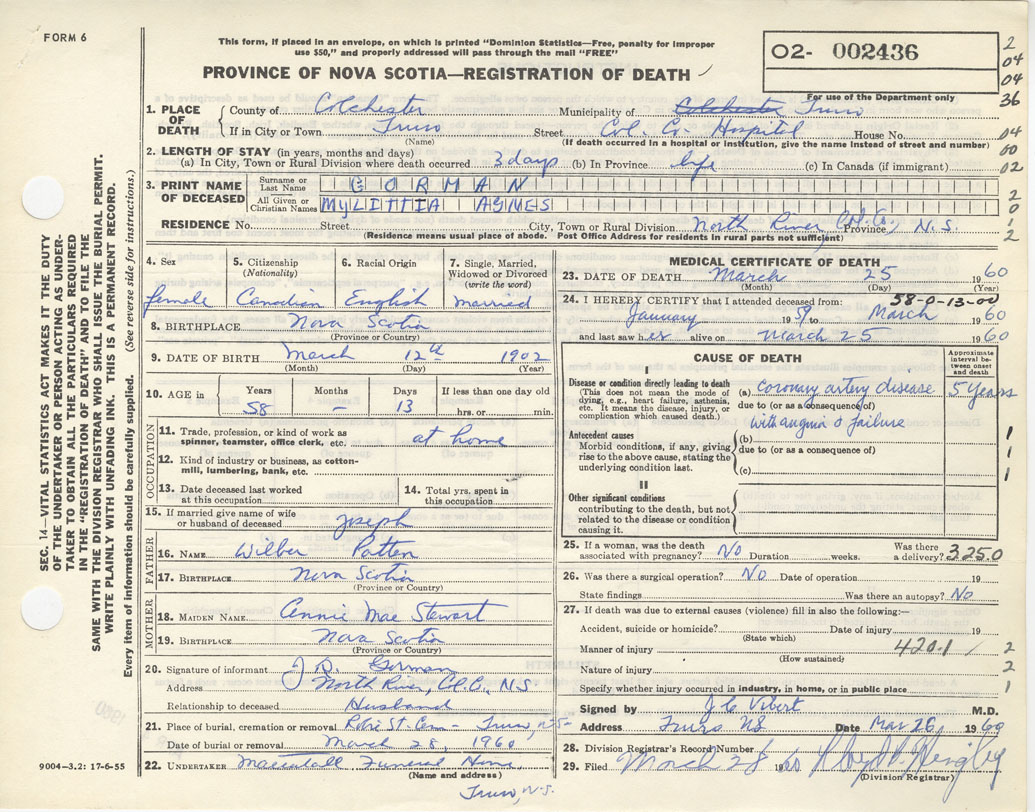 FORM 6
This form, if placed in an envelope, on which is printed "Dominion Statistics—Free, penalty for improper
use $50," and properly addressed will pass through the mail "FREE"
PROVINCE OF NOVA SCOTIA—REGISTRATION OF DEATH
02- 002436
For use of the Department only
2
04
04
36
04
00
02
2
0
2
SEC. 14—VITAL STATISTICS ACT MAKES IT THE DUTY
OF THE UNDERTAKER OR PERSON ACTING AS UNDER-
TAKER TO OBTAIN ALL THE PARTICULARS REQUIRED
IN THE "REGISTRATION OF DEATH" AND TO FILE THE
SAME WITH THE DIVISION REGISTRAR WHO SHALL ISSUE THE BURIAL PERMIT.
WRITE PLAINLY WITH UNFADING INK. THIS IS A PERMANENT RECORD.
Every item of information should be carefully supplied. (See reverse side for instructions.)
1. PLACE OF DEATH County of Colchester Municipality of Colchester Truro
If in City or Town Truro Street Col. Co. Hospital House No.
(Name) (If death occurred in a hospital or institution, give the name instead of street and number)
2. LENGTH OF STAY (in years, months and days)
(a) In City, Town or Rural Division where death occurred 3 days (b) In Province life (c) In Canada (if immigrant)
3. PRINT NAME OF DECEASED Surname or Last Name GORMAN
All Given or Christian Names MyLITTIA AGNES
RESIDENCE No. Street City, Town or Rural Division North River Col. Co. Province N.S.
(Residence means usual place of abode. Post Office Address for residents in rural parts not sufficient)
4. Sex 5. Citizenship (Nationality) 6. Racial Origin 7. Single, Married, Widowed or Divorced (write the word)
female Canadian English married
8. BIRTHPLACE Nova Scotia
(Province or Country)
9. DATE OF BIRTH March 12th 1902
(Month) (Day) (Year)
10. AGE in Years Months Days If less than one day old
58 – 13 hrs. or min.
OCCUPATION
11. Trade, profession, or kind of work as spinner, teamster, office clerk, etc. at home
12. Kind of industry or business, as cotton-mill, lumbering, bank, etc.
13. Date deceased last worked at this occupation
14. Total yrs. spent in this occupation
15. If married give name of wife or husband of deceased Joseph
FATHER
16. NAME Wilber Patten
17. BIRTHPLACE Nova Scotia
(Province or Country)
MOTHER
18. MAIDEN NAME Annie Mae Stewart
19. BIRTHPLACE Nova Scotia
(Province or Country)
20. Signature of informant J. D. Gorman
Address North River, Col. Co., N.S
Relationship to deceased Husband
21. Place of burial, cremation or removal Robie St. Cem – Truro, N.S–
Date of burial or removal March 28, 1960
22. UNDERTAKER Mattatall Funeral Home,
(Name and address)
Truro, N.S.
9004–3.2: 17-6-55
MEDICAL CERTIFICATE OF DEATH
23. DATE OF DEATH March 25 1960
(Month) (Day) (Year)
58-0-13-00
24. I HEREBY CERTIFY that I attended deceased from:
January 1959 to March 1960
and last saw her alive on March 25 1960
CAUSE OF DEATH
Approximate interval between onset and death
I
Disease or condition directly leading to death
(This does not mean the mode of dying, e.g., heart failure, asthenia, etc. It means the disease, injury, or complication which caused death.)
(a) Coronary artery disease 5 Years
due to (or as a consequence of)
with angina & failure
Antecedent causes
Morbid conditions, if any, giving rise to the above cause, stating the underlying condition last.
(b)
due to (or as a consequence of)
(c)
1
1
1
II
Other significant conditions
contributing to the death, but not related to the disease or condition causing it.
25. If a woman, was the death associated with pregnancy? No Duration weeks. Was there a delivery? 3250
26. Was there a surgical operation? No Date of operation 19
State findings Was there an autopsy? No
27. If death was due to external causes (violence) fill in also the following:—
Accident, suicide or homicide? Date of injury 19
(State which)
Manner of injury 420.1 2
(How sustained)
Nature of injury 2
Specify whether injury occurred in industry, in home, or in public place 1
Signed by J C Vibert M.D.
Address Truro NS Date Mar 26 1960
28. Division Registrar's Record Number
29. Filed March 28 1960
(Division Registrar)